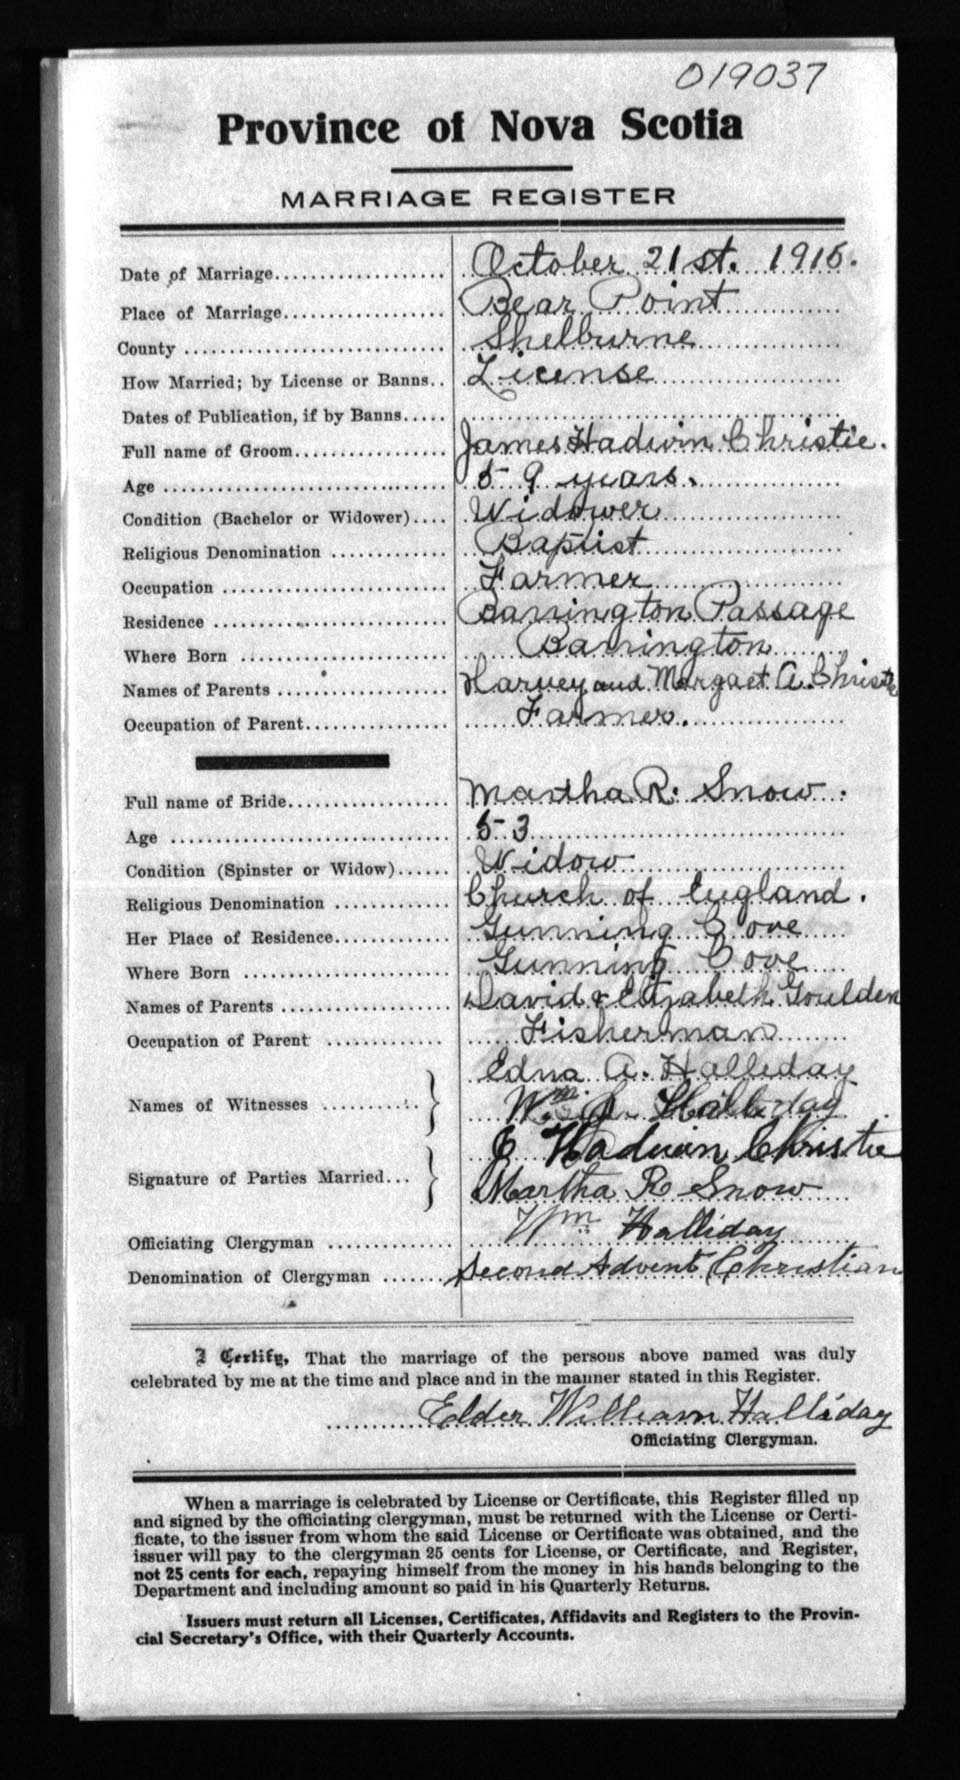 019037
Province of Nova Scotia
MARRIAGE REGISTER
Date of Marriage.................... October 21st. 1915.
Place of Marriage................... Bear Point
County ............................. Shelburne
How Married; by License or Banns.. License
Dates of Publication, if by Banns.....
Full name of Groom.................. James Hadwin Christie.
Age ................................ 59 years.
Condition (Bachelor or Widower).... Widower
Religious Denomination ............. Baptist
Occupation ......................... Farmer
Residence .......................... Barrington Passage
Where Born ......................... Barrington
Names of Parents ................... Harvey and Margaet A. Christie
Occupation of Parent................ Farmer.
Full name of Bride.................. Martha R. Snow.
Age ................................ 53
Condition (Spinster or Widow)...... Widow
Religious Denomination ............. Church of England.
Her Place of Residence............. Gunning Cove
Where Born ......................... Gunning Cove
Names of Parents ................... David & Elizabeth Goulden
Occupation of Parent ............... Fisherman
Edna A. Halliday
Names of Witnesses ............ } Wm. J. Halliday
J Hadwin Christie
Signature of Parties Married... } Martha R Snow
Officiating Clergyman .............. Wm Halliday
Denomination of Clergyman ....... Second Advent Christian
I Certify, That the marriage of the persons above named was duly
celebrated by me at the time and place and in the manner stated in this Register.
Elder William Halliday
Officiating Clergyman.
When a marriage is celebrated by License or Certificate, this Register filled up
and signed by the officiating clergyman, must be returned with the License or Certi-
ficate, to the issuer from whom the said License or Certificate was obtained, and the
issuer will pay to the clergyman 25 cents for License, or Certificate, and Register,
not 25 cents for each, repaying himself from the money in his hands belonging to the
Department and including amount so paid in his Quarterly Returns.
Issuers must return all Licenses, Certificates, Affidavits and Registers to the Provin-
cial Secretary's Office, with their Quarterly Accounts.